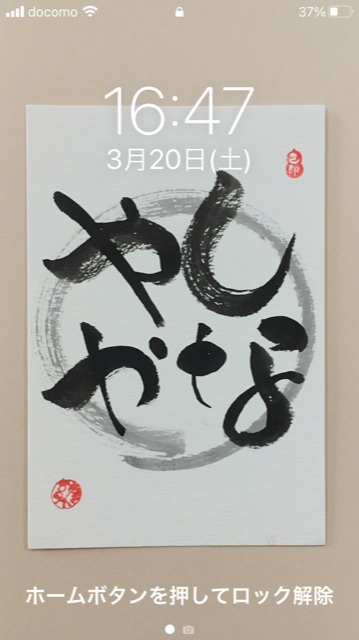 docomo 37%
16:47
3月20日(土)
しな
やか
ホームボタンを押してロック解除